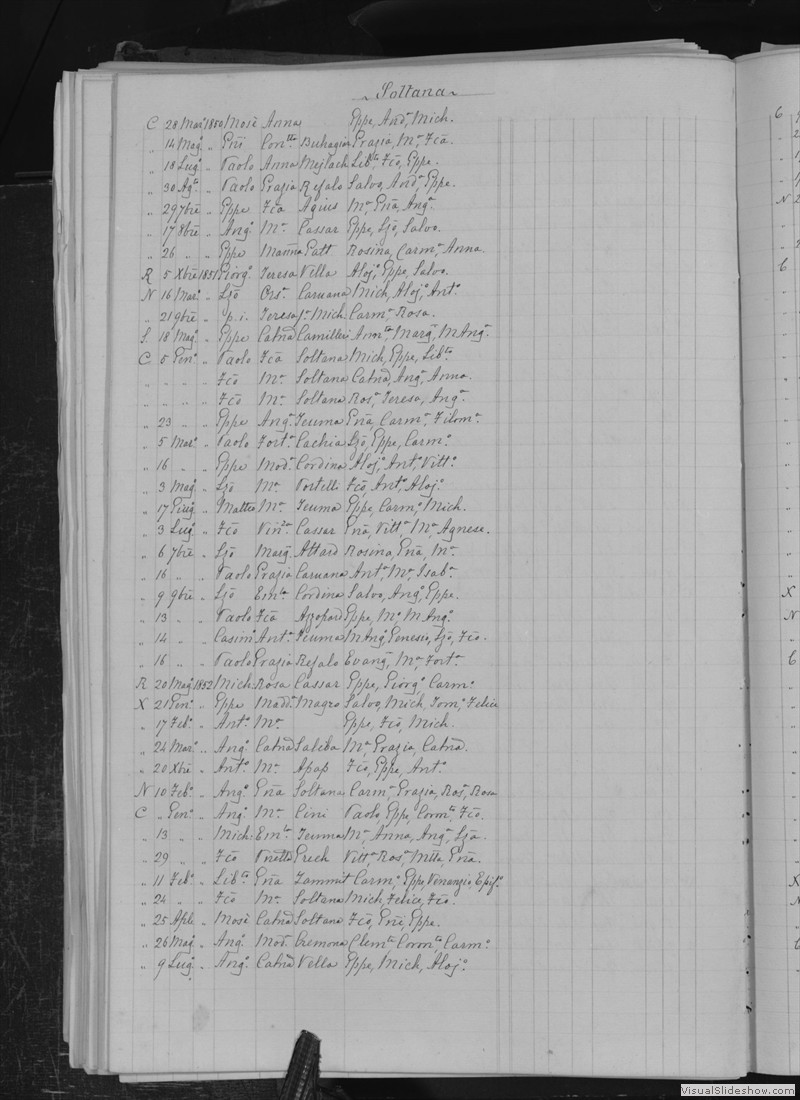 Soltana
C 28 Mar.o 1850 Mosè Anna Gppe, And.a Mich.
„ 14 Mag.o „ Gni Con.tta Buhagiar Grazia, M.a Fca.
„ 18 Lug.o „ Paolo Anna Mejlach Lib.ta Fco, Gppe.
„ 30 Ag.to „ Paolo Grazia Refalo Salvo, And.a Gppe.
„ 29 7bre „ Gppe Fca Agius M.a Gna, Ang.a
„ 17 8bre „ Ang.o M.a Cassar Gppe, Ljo, Salvo.
„ 26 „ „ Gppe Marina Patt Rosina, Carm.a Anna.
R 5 Xbre 1851 Giorg.o Teresa Vella Aloj.o Gppe, Salvo.
N 16 Mar.o „ Ljo Ors.a Caruana Mich, Aloj.o Ant.o
„ 21 9bre „ p.i. Teresa Mich. Carm.a Rosa.
S. 18 Mag.o „ Gppe Catna Camilleri Ann.ta, Marg.a, M Ang.a
C 5 Gen.o „ Paolo Fca Soltana Mich, Gppe, Lib.to
„ „ „ „ Fco M.a Soltana Catna, Ang.a, Anna.
„ „ „ „ Fco M.a Soltana Ros.a Teresa, Ang.a
„ 23 „ „ Gppe Ang.a Teuma Gna, Carm.a, Filom.a
„ 5 Mar.o „ Paolo Fort.a Cachia Ljo, Gppe, Carm.o
„ 16 „ „ Gppe Mod.a Cordina Aloj.o, Ant.o, Vitt.o
„ 3 Mag.o „ Ljo M.a Portelli Fco, Ant.o, Aloj.o
„ 17 Giug.o „ Matteo M.a Teuma Gppe, Carm.o, Mich.
„ 3 Lug.o „ Fco Vin.za Cassar Gna, Vitt.a, M.a, Agnese.
„ 6 7bre „ Ljo Marg.a Attard Rosina, Gna, M.a
„ 16 „ „ Paolo Grazia Caruana Ant.a, M.a, Isab.a
„ 9 9bre „ Ljo Em.la Cordina Salvo, Ang.o, Gppe.
„ 13 „ „ Paolo Fca Azzopard Gppe, M.a M Ang.o
„ 14 „ „ Casim.o Ant.a Teuma M Ang.o Genesio, Ljo, Fco.
„ 16 „ „ Paolo Grazia Refalo Evang.a, M.a, Fort.a
R 20 Mag.o 1852 Mich. Rosa Cassar Gppe, Giorg.o Carm.o
X 21 Gen.o „ Gppe Madd.a Magro Salvo, Mich, Tom.o, Felice
„ 17 Feb.o „ Ant.o M.a Gppe, Fco, Mich.
„ 24 Mar.o „ Ang.o Catna Saliba M.a, Grazia, Catna.
„ 20 Xbre „ Ant.o M.a Apap Fco, Gppe, Ant.o
N 10 Feb.o „ Ang.o Gna Soltana Carm.a, Grazia, Ros.a, Rosa
C „ Gen.o „ Ang.o M.a Cini Paolo, Gppe, Corm.ta, Fco.
„ 13 „ „ Mich. Em.la Teuma M.a, Anna, Ang.a, Lja.
„ 29 „ „ Fco Grech Vitt.a, Ros.a, Gna.
„ 11 Feb.o „ Lib.to Gna Zammit Carm.o, Gppe, Venanzio, Epif.o
„ 24 „ „ Fco M.a Soltana Mich, Felice, Fco.
„ 25 Aple „ Mosè Catna Soltana Fco, Gni, Gppe.
„ 26 Mag.o „ Ang.o Mod.a Cremona Clem.te Carm.o
„ 9 Lug.o „ Ang.o Catna Vella Gppe, Mich, Aloj.o
VisualSlideshow.com